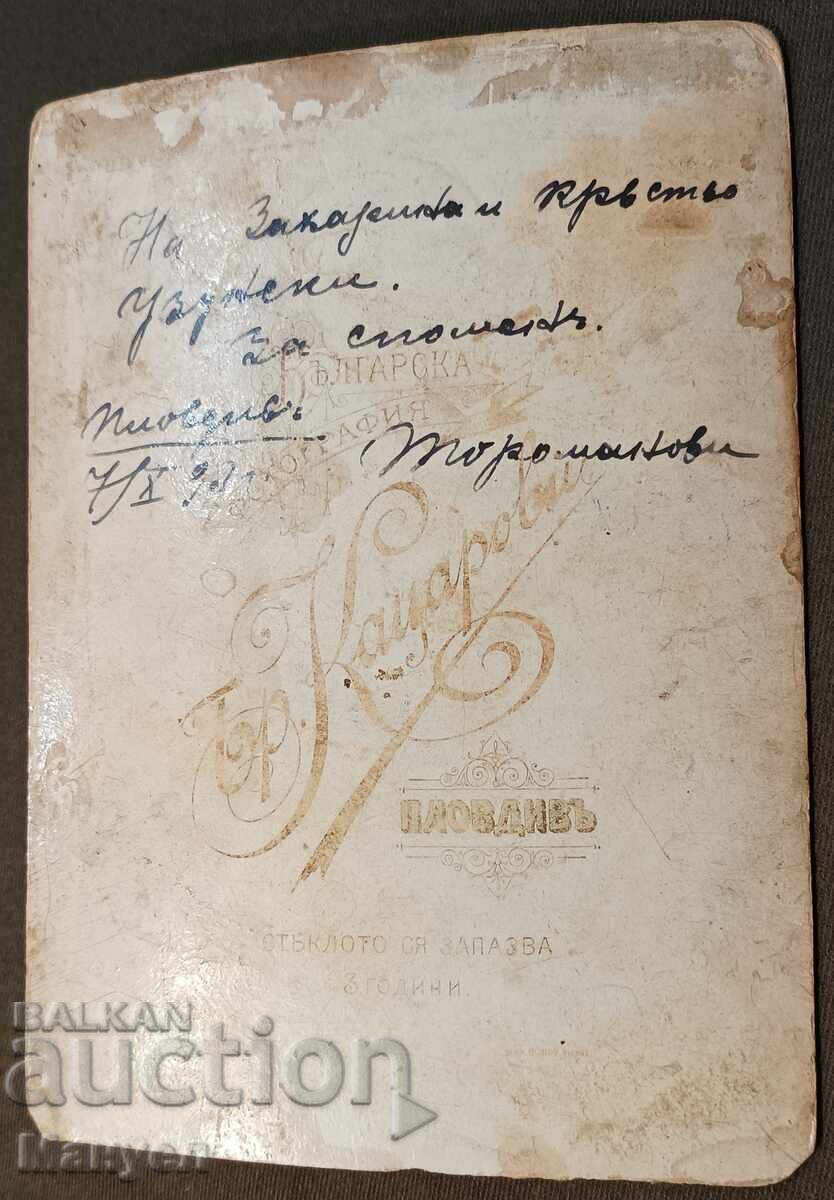 На Захарина и Кръстьо
Узунски.
За споменъ.
Пловдивъ.
7/X
Тороманови
БЪЛГАРСКА
ФОТОГРАФИЯ
Бр Кацарови
ПЛОВДИВЪ
СТЪКЛОТО СЯ ЗАПАЗВА
3 ГОДИНИ.
BALKAN
auction
Мануел